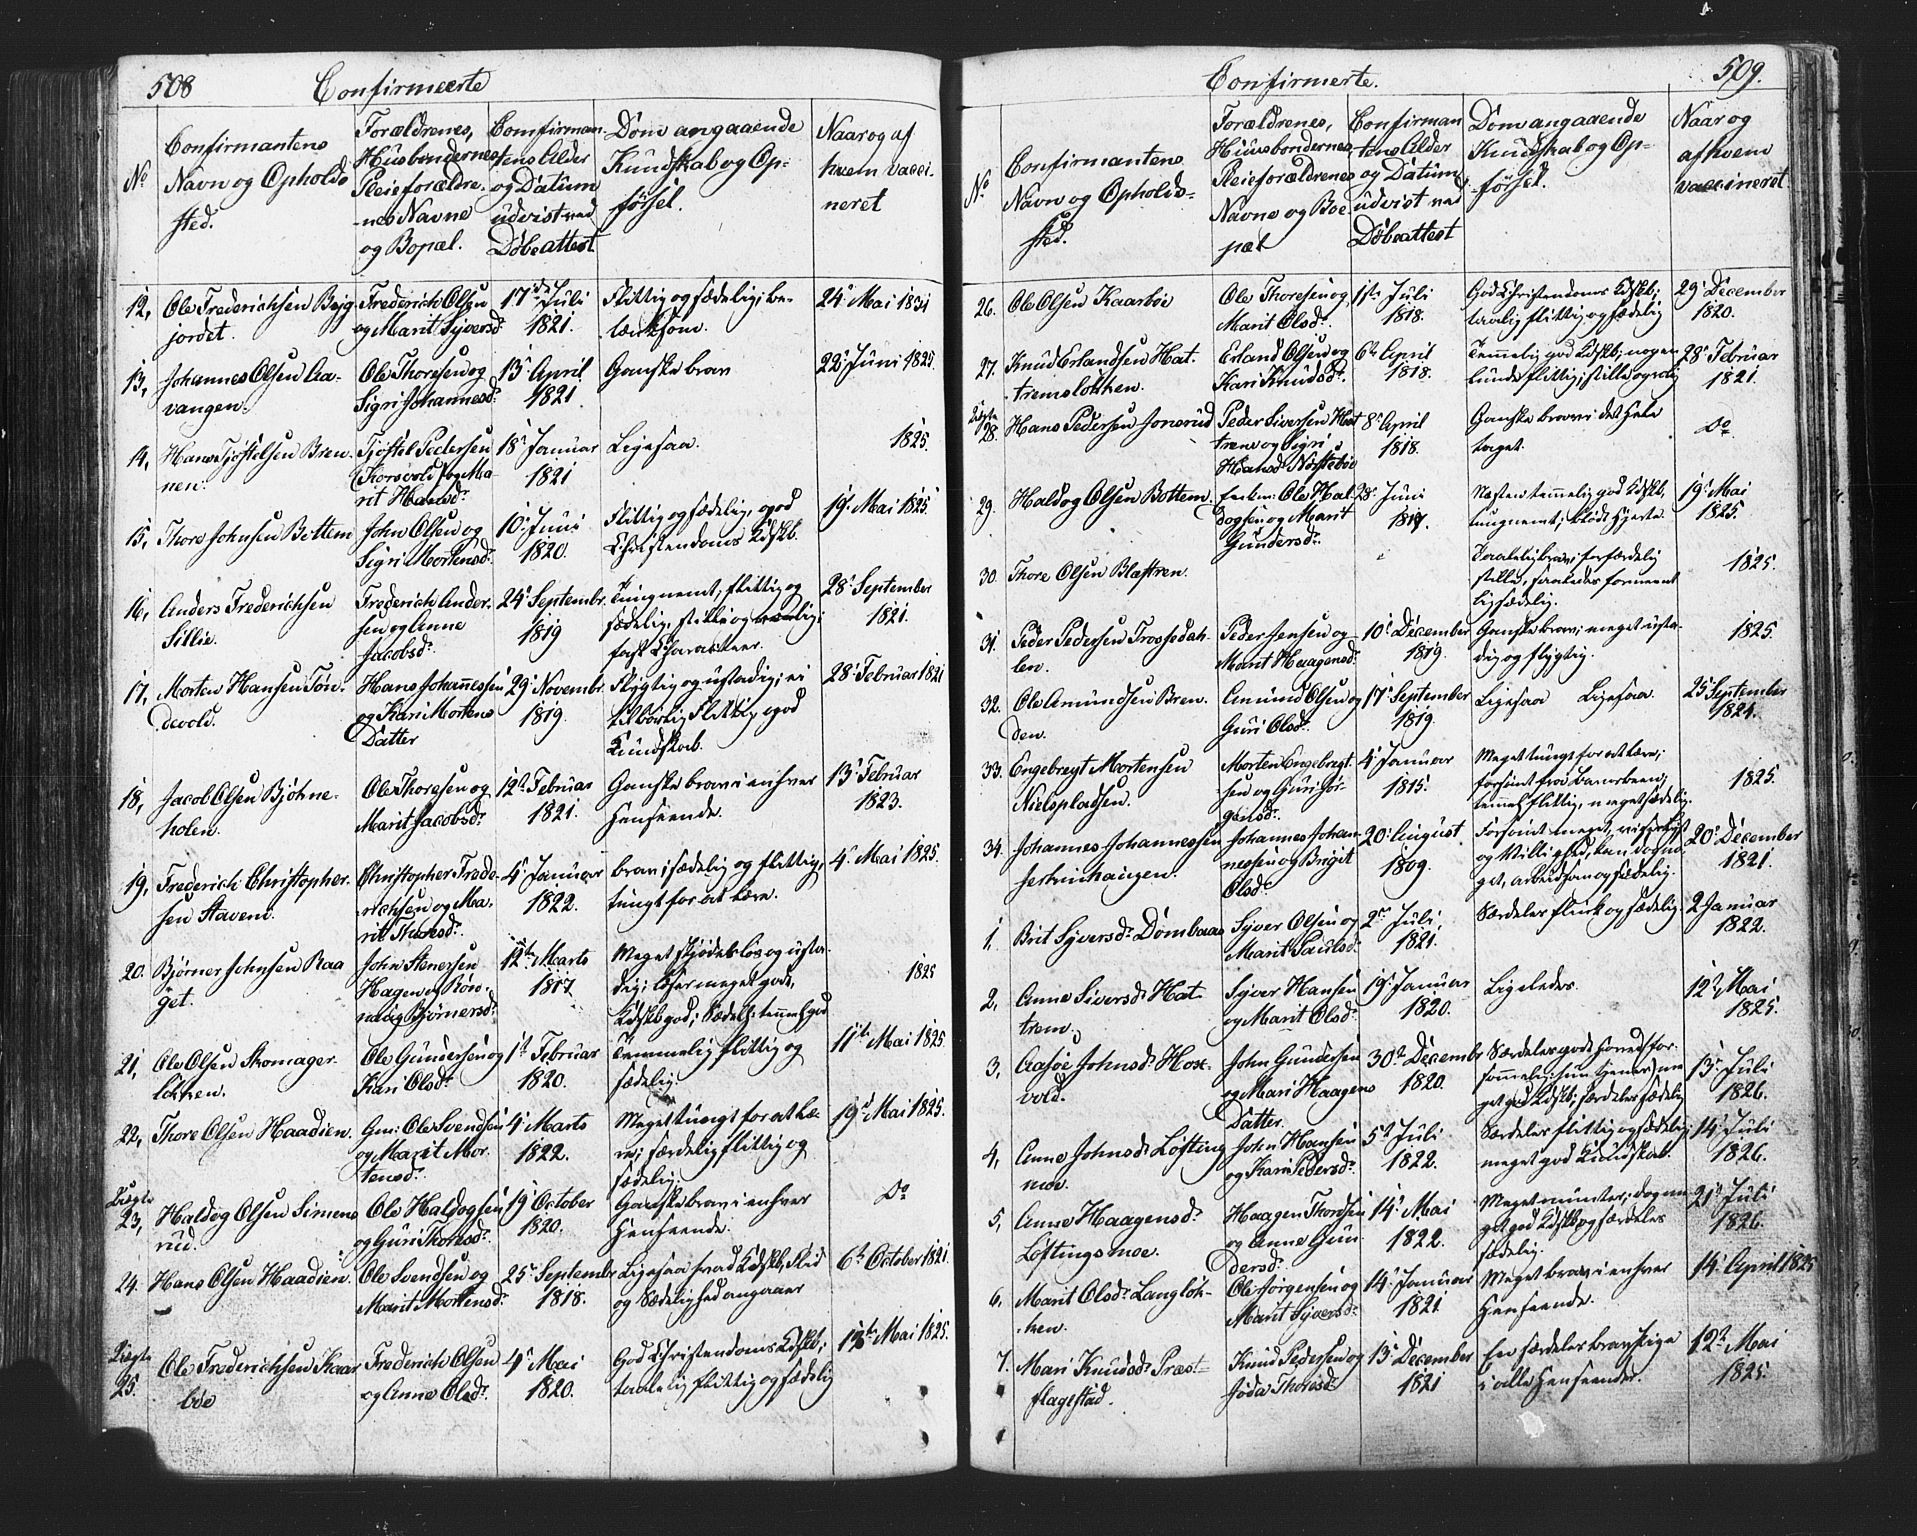 508
Confirmeerte
No
Confirmantens
Navn og Opholds
sted.
Forældrenes,
Husbondernes,
Pleieforældre-
nes Navne
og Bopæl.
Comfirman
tens Alder
og Datum
udvist ved
Døbeattest
Dom angaaende
Kundskab og Op-
førsel.
Naar og af
hvem vacci-
neret
12, Ole Frederichsen Bøjg
jordet.
Frederich Olsen
og Marit Syversd.
17de Juli
1821.
Flittig og sædelig; be-
tænksom.
24de Mai 1831
13, Johannes Olsen Aa-
vangen.
Ole Thoresen og
Sigri Johannesd.
13de April
1821
Ganske brav
22de Juni 1825
14, Hans Tjøstelsen Bren-
nen.
Tjøstel Pedersen
Korsvold og Ma
rit Hansd.
18de Januar
1821
Ligesaa.
1825.
15, Thore Johnsen Bottem
John Olsen og
Sigri Mortensd.
10de Juni
1820.
Flittig og sædelig, god
Christendoms Kdskb.
19de Mai 1825.
16, Anders Frederichsen
Sillie.
Frederich Ander-
sen og Anne
Jacobsd.
24de Septembr.
1819
Tungnemt, flittig og
sædelig, stille og
fast Charakteer.
28de September
1821.
17, Morten Hansen Tøn-
devold.
Hans Johannessen
og Kari Mortens
Datter
29de Novembr.
1819.
Flygtig og ustadig; ei
tilbørlig Flittig, god
Kundskab.
28de Februar 1821
18, Jacob Olsen Bjøhne-
holen.
Ole Thoresen og
Marit Jacobsd.
12te Februar
1821.
Ganske brav i enhver
Henseende.
13de Februar
1823.
19, Frederich Christopher-
sen Stavem.
Christopher Frede-
richsen og Ma-
rit Thoresd.
4de Januar
1822.
brav; sædelig og flittig,
tungt for at lære.
4de Mai 1825.
20. Bjørner Johnsen Raa
get.
John Stenersen
Hagen og Røn-
naug Bjørnersd.
12te Marts
1817
Meget skjødesløs og usta-
dig; læser meget godt,
Kdskb god; Sædelh: temmel. god
1825
21, Ole Olsen Skomager-
løkken.
Ole Gundersen og
Kari Olsd.
1ste Februar
1820.
Temmelig flittig og
sædelig.
11te Mai 1825.
22, Thore Olsen Haadien.
Gm: Ole Svendsen
og Marit Mor-
tensd.
4de Marts
1822.
Meget tungt for at læ-
re; særdeles flittig og
sædelig.
19de Mai 1825.
23, Haldog Olsen Simens
rud.
Ole Haldogsen
og Guri Thoresd.
19de October
1820.
Ganske brav i enhver
Henseende.
Do
24. Hans Olsen Haadien.
Ole Svendsen og
Marit Mortensd.
25de Septembr
1818.
Ligesaa hvad Kdskb, Flid
og Sædelighed angaaer
6te October 1821
25. Ole Frederichsen Kaar
bøe
Frederich Olsen
og Anne Olsd.
4de Mai
1820.
God Christendoms Kdskb;
taalelig flittig og sædelig
12te Mai 1825.
Confirmerte.
509.
No
Confirmantens
Navn og Opholds-
sted.
Forældrenes,
Huusbondernes,
Pleieforældrenes
Navne og Bo-
pæl
Confirman
tens Alder
og Datum
udvist ved
Døbeattest
Dom angaaende
Kundskab og Op-
førsel.
Naar og
af hvem
vaccineret
26. Ole Olsen Kaarbøe
Ole Thoresen og
Marit Olsd.
1ste Juli
1818.
God Christendoms Kdskb;
taalig flittig og sædelig
29de December
1820.
27. Knud Erlandsen Hat-
tremsløkken.
Erland Olsen og
Kari Knudsd.
6te April
1818.
Temmelig god Kdskb; nogen
lunde flittig; stille og rolig
28de Februar
1821.
28. Hans Pedersen Jonsrud
Peder Siversen Hat
trem og Sigri
Hansd. Nørstebøe
8de April
1818.
Ganske brav i det hele
taget.
Do
29. Haldog Olsen Bottem.
Enkm: Ole Hal-
dogsen og Marit
Gundersd.
28de Juni
1817.
Næsten temmelig god Kdskb,
tungnemt; blødt Hjerte.
19de Mai
1825.
30. Thore Olsen Blæstren.
Taalelig brav; forfærdelig
stille, saaledes formeent
lig sædelig.
1825.
31. Peder Pedersen Trossedah-
len.
Peder Jensen og
Marit Haagensd.
10de December
1819.
Ganske brav; meget usta-
dig og flygtig.
1825.
32. Ole Amundsen Bren-
den.
Amund Olsen og
Guri Olsd.
17de September
1819.
Ligesaa Ligesaa
25de September
1824.
33. Engebregt Mortensen
Nielspladsen.
Morten Engebregt-
sen og Guri Jør-
gensd.
4de Januar
1815.
Meget tungt for at lære;
forsømt fra barnsbeen;
temmel. flittig, meget sædelig.
1825.
34. Johannes Johannessen
Johannes Johan-
nessen og Brigit
Olsd.
20de August
1809.
Forsømt meget,
og Villighed, kan dog no-
get, arbeidsom og sædelig.
20de December
1821.
1. Brit Syversd. Dombaas
Syver Olsen og
Marit Paulsd.
2den Juli,
1821.
Særdeles flink og sædelig.
2 Januar
1822.
2, Anne Siversd. Hat-
trem.
Syver Hansen
og Marit Olsd.
19de Januar
1820.
Ligeledes.
12te Mai
1825.
3, Aasøe Johnsd. Hox-
vold.
John Gundersen
og Mari Haagens
Datter.
30te Decembr
1820.
Særdeles godt
me
get god Kdskb; særdeles sædelig
13de Juli
1826.
4, Anne Johnsd. Løfting
moe.
John Hansen
og Kari Pedersd.
5te Juli
1822.
Særdeles flittig og sædelig;
meget god Kundskab.
14de Juli
1826.
5, Anne Haagensd.
Løftingsmoe.
Haagen Thoresen
og Anne Gun
dersd.
14de Mai
1822.
Meget munter; dog me
get god Kdskb og særdeles
sædelig.
21de Juli
1826.
6, Marit Olsd. Langløk-
ken.
Ole Jørgensen og
Marit Syversd.
14de Januar
1821
Meget brav i enhver
Henseende.
14de April 1825
7. Mari Knudsd. Præst-
flagestad.
Knud Pedersen og
Jøda Thoresd.
13de December
1821
En særdeles brav Pige
i alle Henseender.
12te Mai
1825.